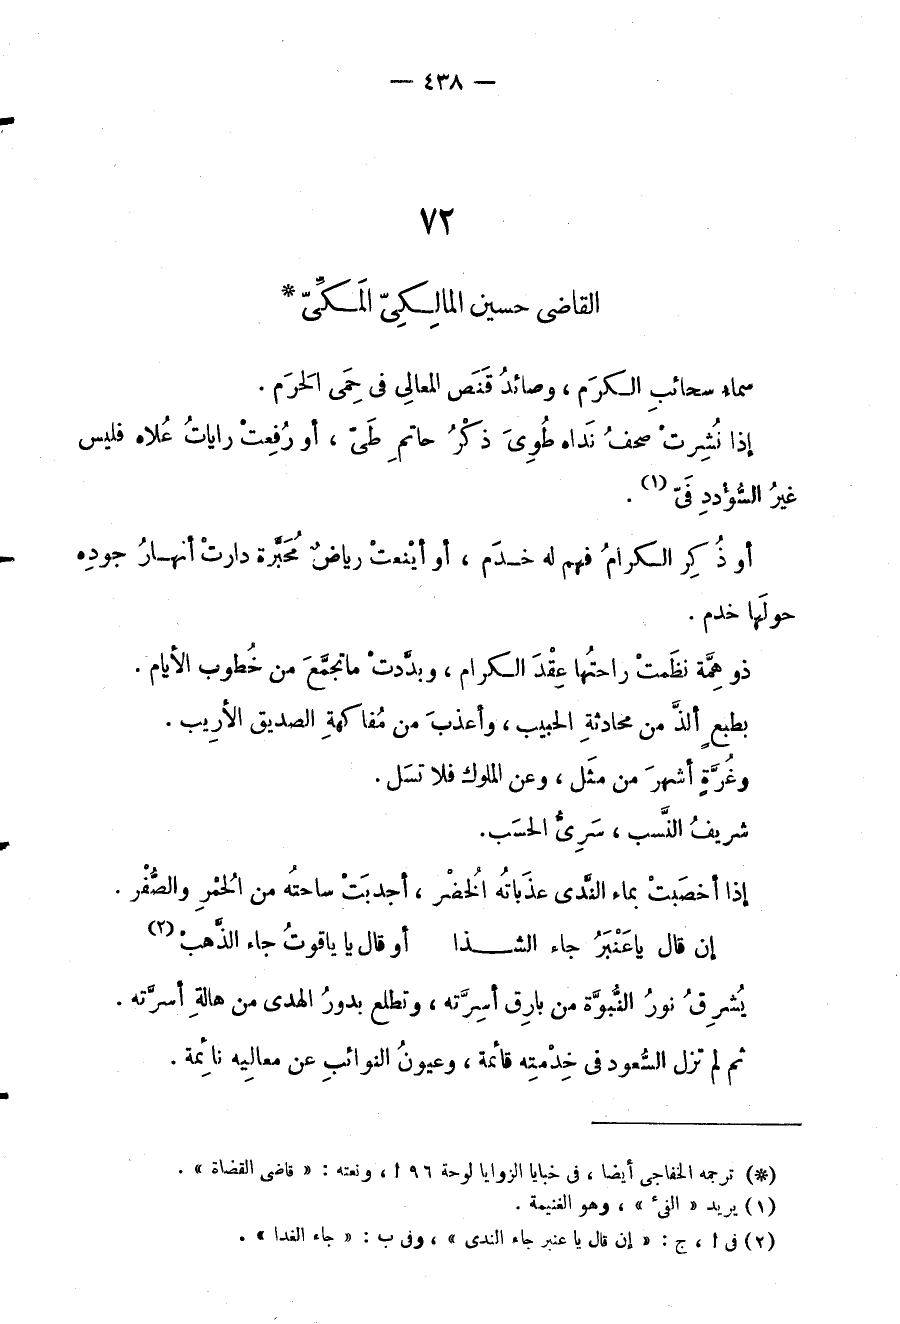 — ٤٣٨ —
٧٢
القاضى حسين المالِـكِىّ المَـكِّىّ *
سماء سحائبِ الـكرَم ، وصائدُ قَنَص المعالى فى حِمَى الحَرَم .
إذا نُشِرتْ صحفُ نَداه طُوِىَ ذكْرُ حاتمِ طَىّ ، أو رُفِعتْ راياتُ عُلاه فليس
غيرُ السُّؤْددِ فَىّ (١) .
أو ذُكِر الـكرامُ فهم له خـدَم ، أو أيْنعتْ رياضٌ مُحَبَّرة دارتْ أنهـارُ جودِه
حولَها خدم .
ذو هِمَّة نظَمتْ راحتُها عِقْدَ الـكرام ، وبدَّدتْ ماتجمَّعَ من خُطوب الأيام .
بطبعٍ ألذَّ من محادثةِ الحبيب ، وأعذبَ من مُفاكهةِ الصديق الأرِيب .
وغُرَّةٍ أشهرَ من مثَل ، وعن الملوك فلا تسَل .
شريفُ النَّسب ، سَرِىُّ الحسَب.
إذا أخصَبتْ بماء النَّدى عذَباتُه الخُضْر ، أجدبَتْ ساحتُه من الحُمْرِ والصُّفْر .
إن قال ياعَنْبَرُ جاء الشـــذا أو قال يا ياقوتُ جاء الذَّهبْ (٢)
يُشرِقُ نورُ النُّبوَّة من بارِق أسِرَّته ، وتطلع بدورُ الهدى من هالةِ أسرَّته .
ثم لم تزل السُّعود فى خِدْمتِه قائمة ، وعيونُ النوائبِ عن معالِيه نائِمة .
(*) ترجمه الخفاجى أيضا ، فى خبايا الزوايا لوحة ٩٦ ا ، ونعته : « قاضى القضاة » .
(١) يريد « الفىء » ، وهو الغنيمة .
(٢) فى ا ، ج : « إن قال يا عنبر جاء الندى » ، وفى ب : « جاء الغدا » .